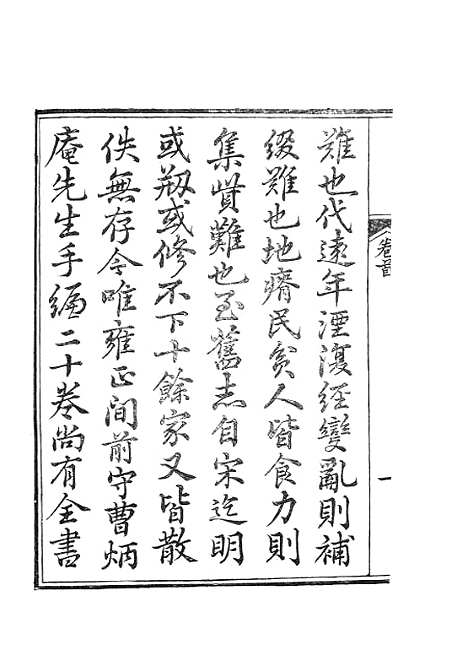 卷首
一
難也代遠年湮復經變亂則補
綴難也地瘠民貧人皆食力則
集貲難也至舊志自宋迄明
或刱或修不下十餘家又皆散
佚無存今唯雍正间前守曹炳
庵先生手編二十卷尚有全書